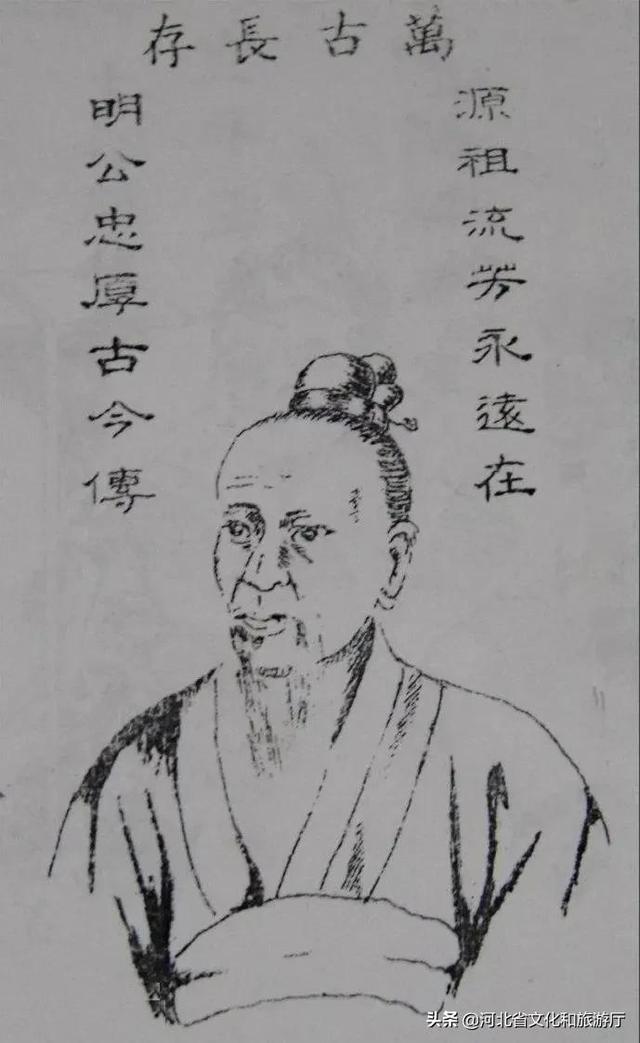 萬古長存
源祖流芳永遠在
明公忠厚古今傳
头条 @河北省文化和旅游厅